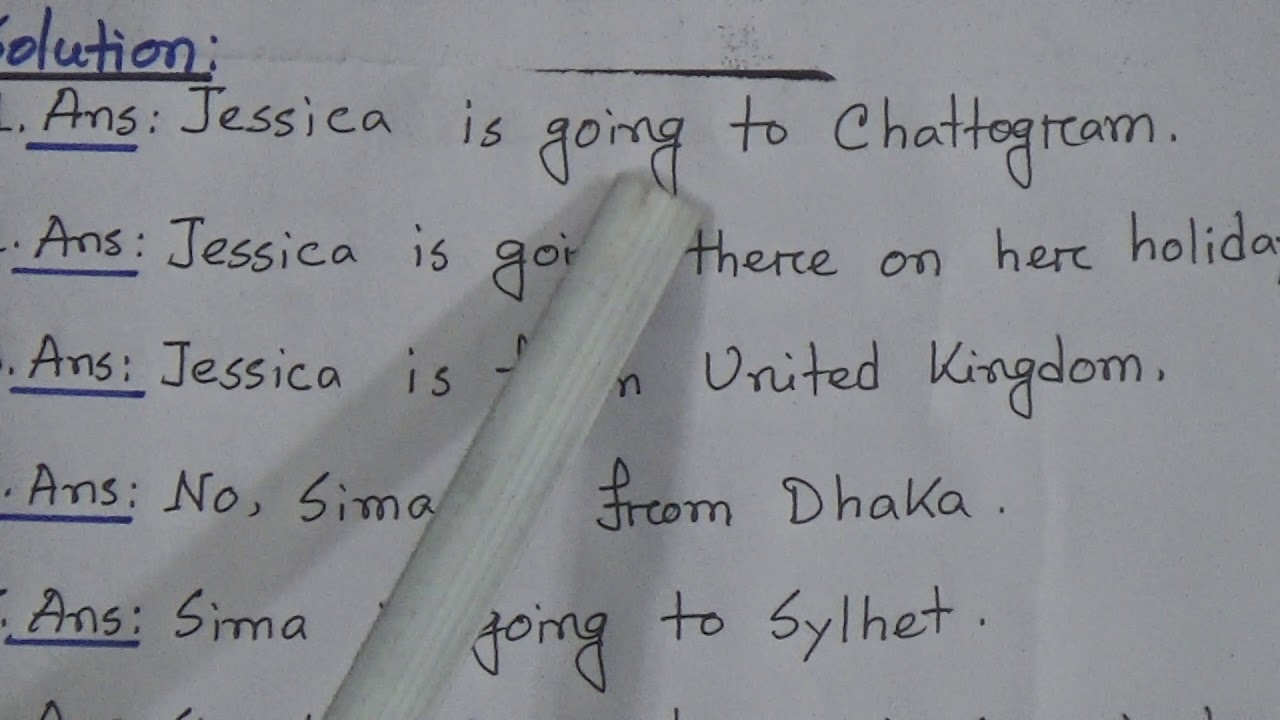 Solution:
1. Ans: Jessica is going to Chattogram.
Ans: Jessica is there on her
Ans: Jessica is United Kingdom.
Ans: No, Sima from Dhaka.
Ans: Sima going to Sylhet.